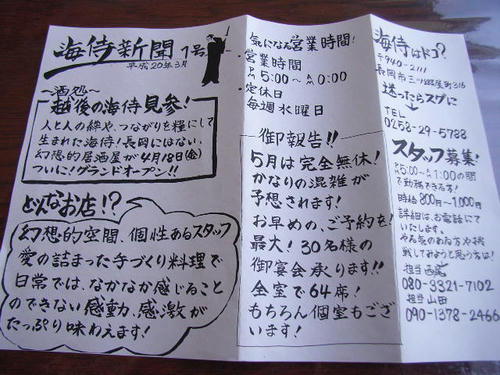 海侍新聞 1号
平成20年3月
〜酒処〜
越後の海侍見参!
人と人の絆や、つながりを糧にして
生まれた海侍!長岡にはない、
幻想的居酒屋が4月18日(金)
ついに!グランドオープン!!
どんなお店!?
幻想的空間、個性あるスタッフ
愛の詰まった手づくり料理で
日常では、なかなか感じること
のできない感動、感激が
たっぷり味わえます!
気になる営業時間!
営業時間
PM5:00〜AM0:00
定休日
毎週水曜日
御報告!!
5月は完全無休!
かなりの混雑が
予想されます!
お早めの、ご予約を!
最大!30名様の
御宴会承ります!!
全室で64席!
もちろん個室もござ
います!
海侍はドコ?
〒940-2111
長岡市三ツ郷屋町316
迷ったらスグに
TEL
0258-29-5788
スタッフ募集!
PM5:00〜AM1:00の間
で勤務できる方!
時給800円〜1,000円
詳細は、お電話にて
いたします。
やる気のある方や挑
戦してみようと思う方は!
担当
080-3321-7102
担当 山田
090-1378-2466